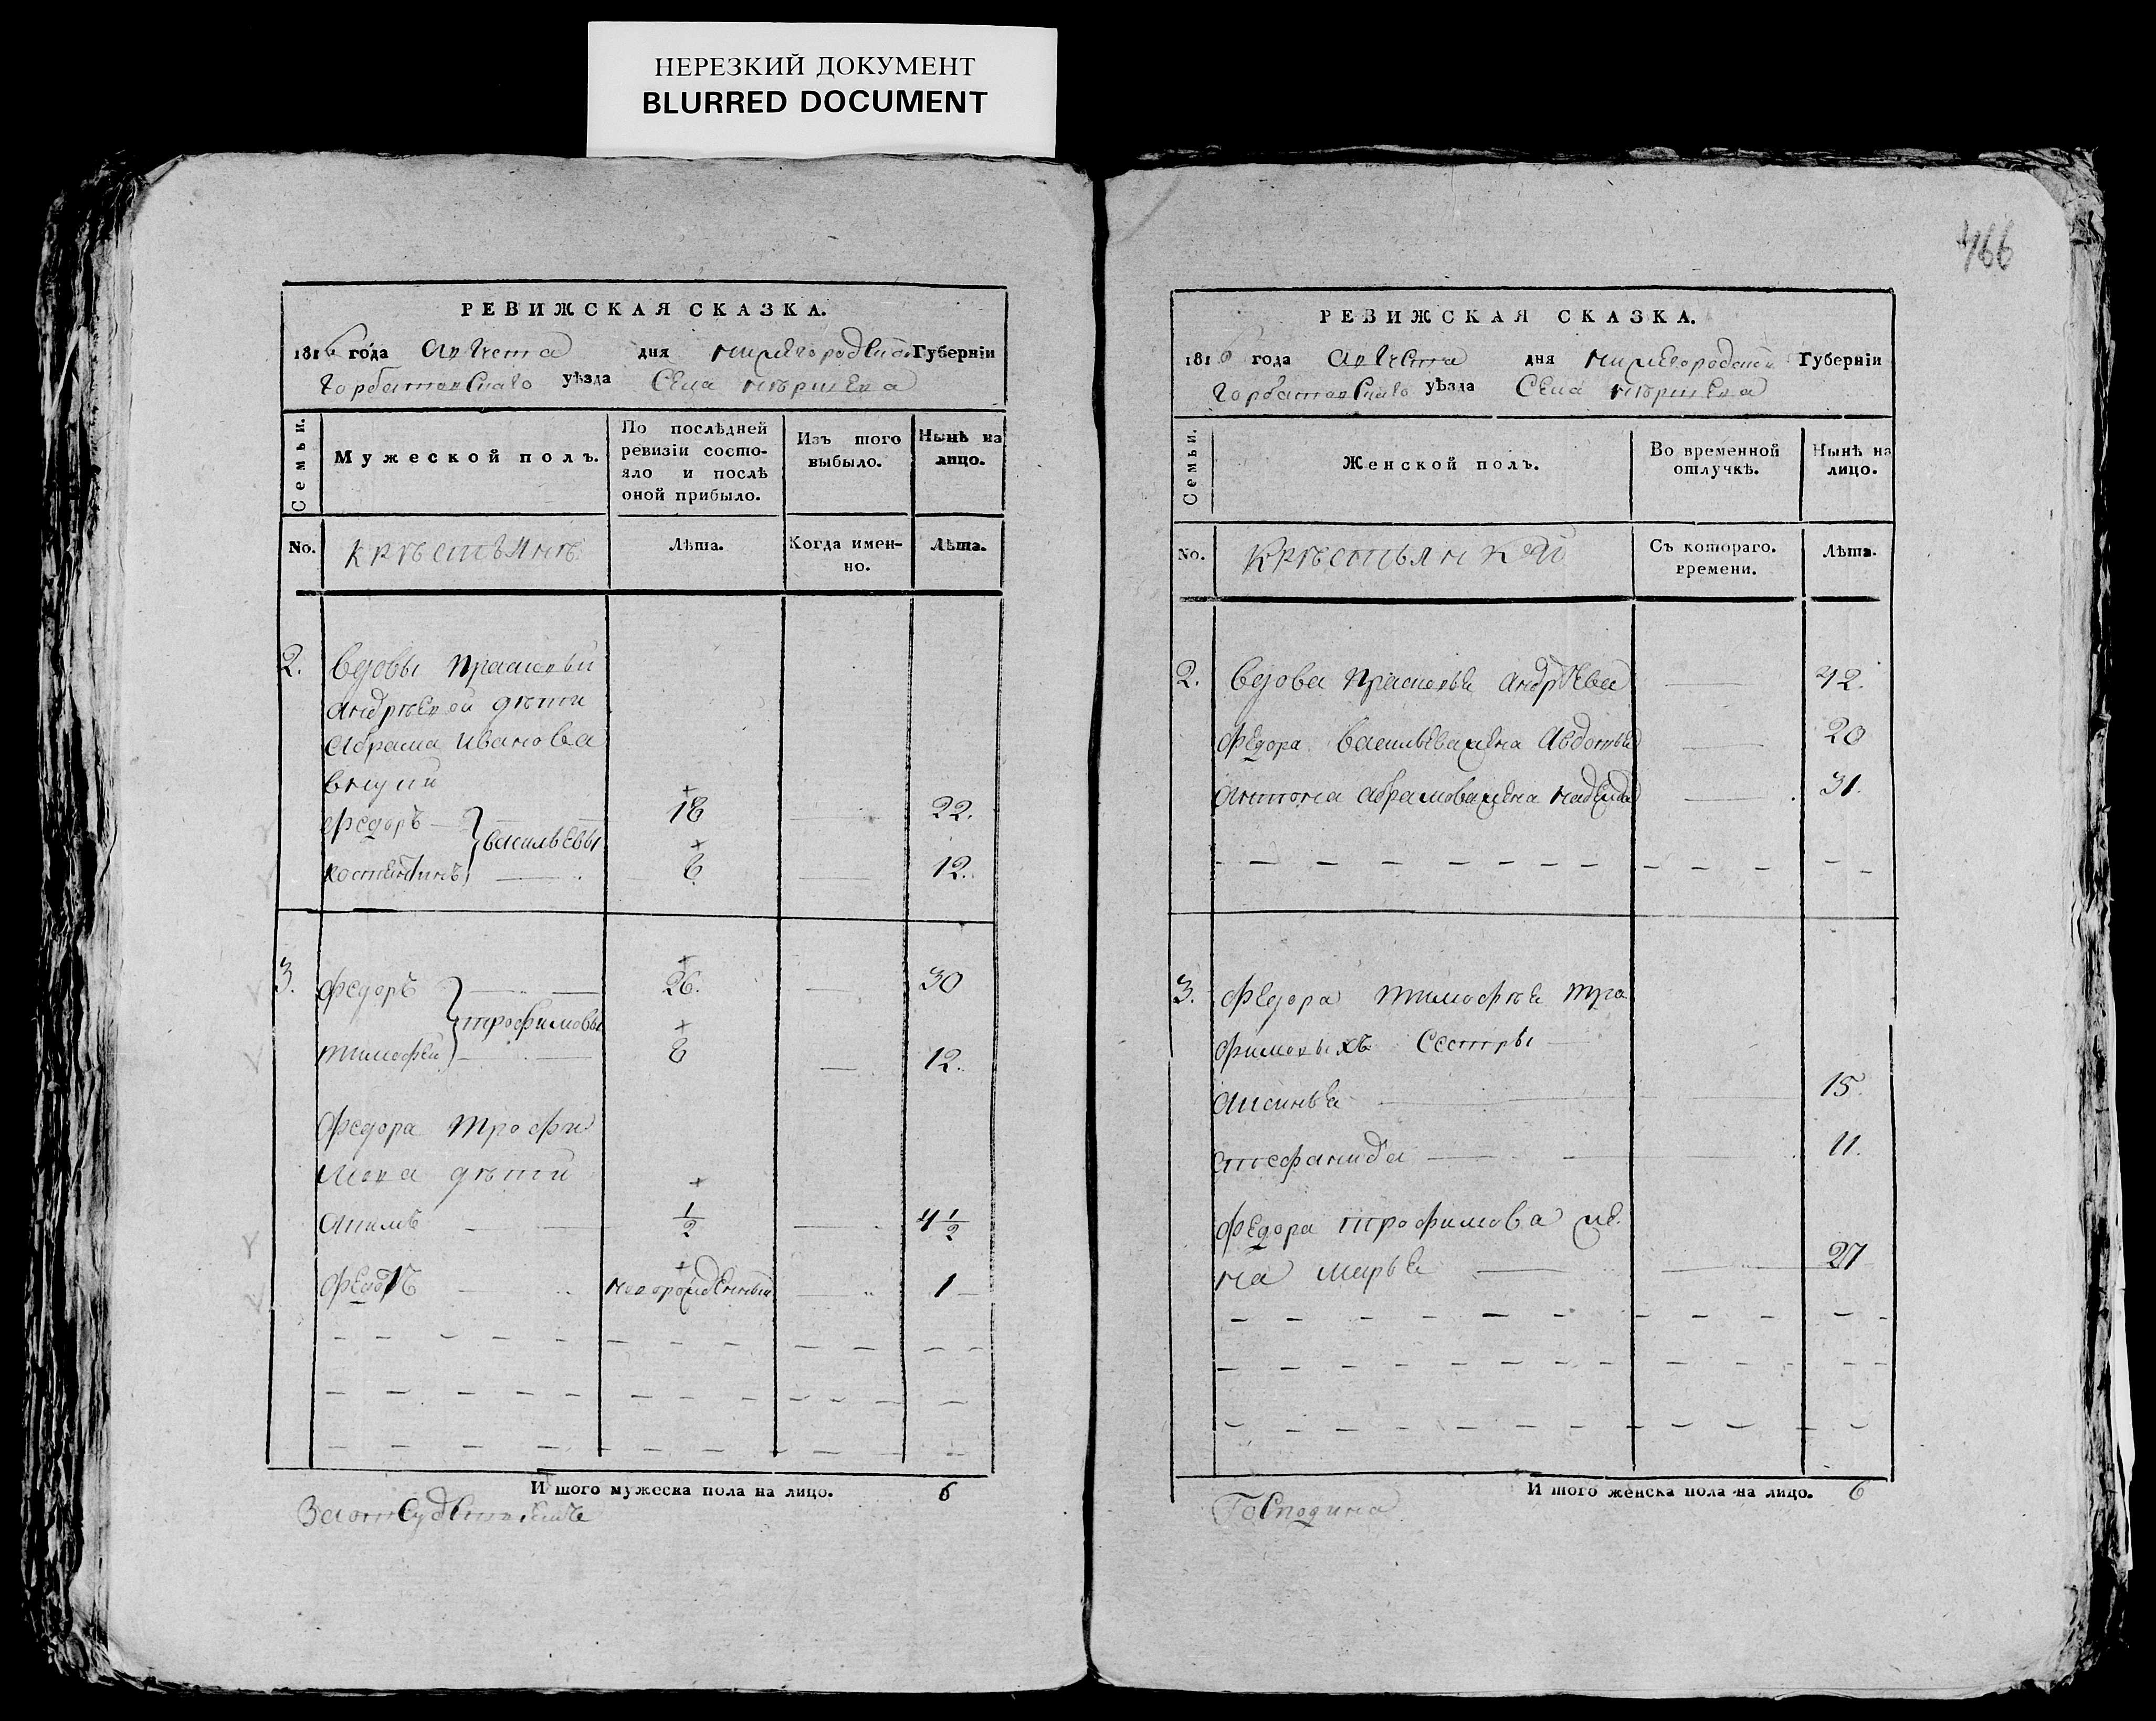 НЕРЕЗКИЙ ДОКУМЕНТ
BLURRED DOCUMENT
РЕВИЖСКАЯ СКАЗКА.
1816 года Августа дня Нижегородской Губерніи
Горбатовскаго уѣзда Села
Семьи.
Мужеской полъ.
По послѣдней ревизіи состояло и послѣ оной прибыло.
Изъ того выбыло.
Нынѣ на лицо.
No.
крѣстьянѣ
Лѣта.
Когда именно.
Лѣта.
2. Вдовы Прасковьи
Андрѣевой дѣти
Абрама Иванова
внуки
федоръ 18 22.
васильевы
костентинъ 8 12.
3. федоръ 26. 30
трофимовы
тимофей 8 12.
федора трофи
мова дѣти
Акимъ 1/2 4 1/2
новорожденный 1
И того мужеска пола на лицо. 6
466
РЕВИЖСКАЯ СКАЗКА.
1816 года Августа дня Нижегородской Губерніи
Горбатовскаго уѣзда Села
Семьи.
Женской полъ.
Во временной отлучкѣ.
Нынѣ на лицо.
No.
Крѣстьянки
Съ котораго. времени.
Лѣта.
2. Вдова Прасковья Андрѣева 42.
федора васильева жена Авдотья 20
антона абрамова жена надежда 31.
3. федора тимофѣя тро
фимовыхъ сестры
Аксинья 15.
стефанида 11.
федора трофимова же
на марья 27
И того женска пола на лицо. 6
Господина